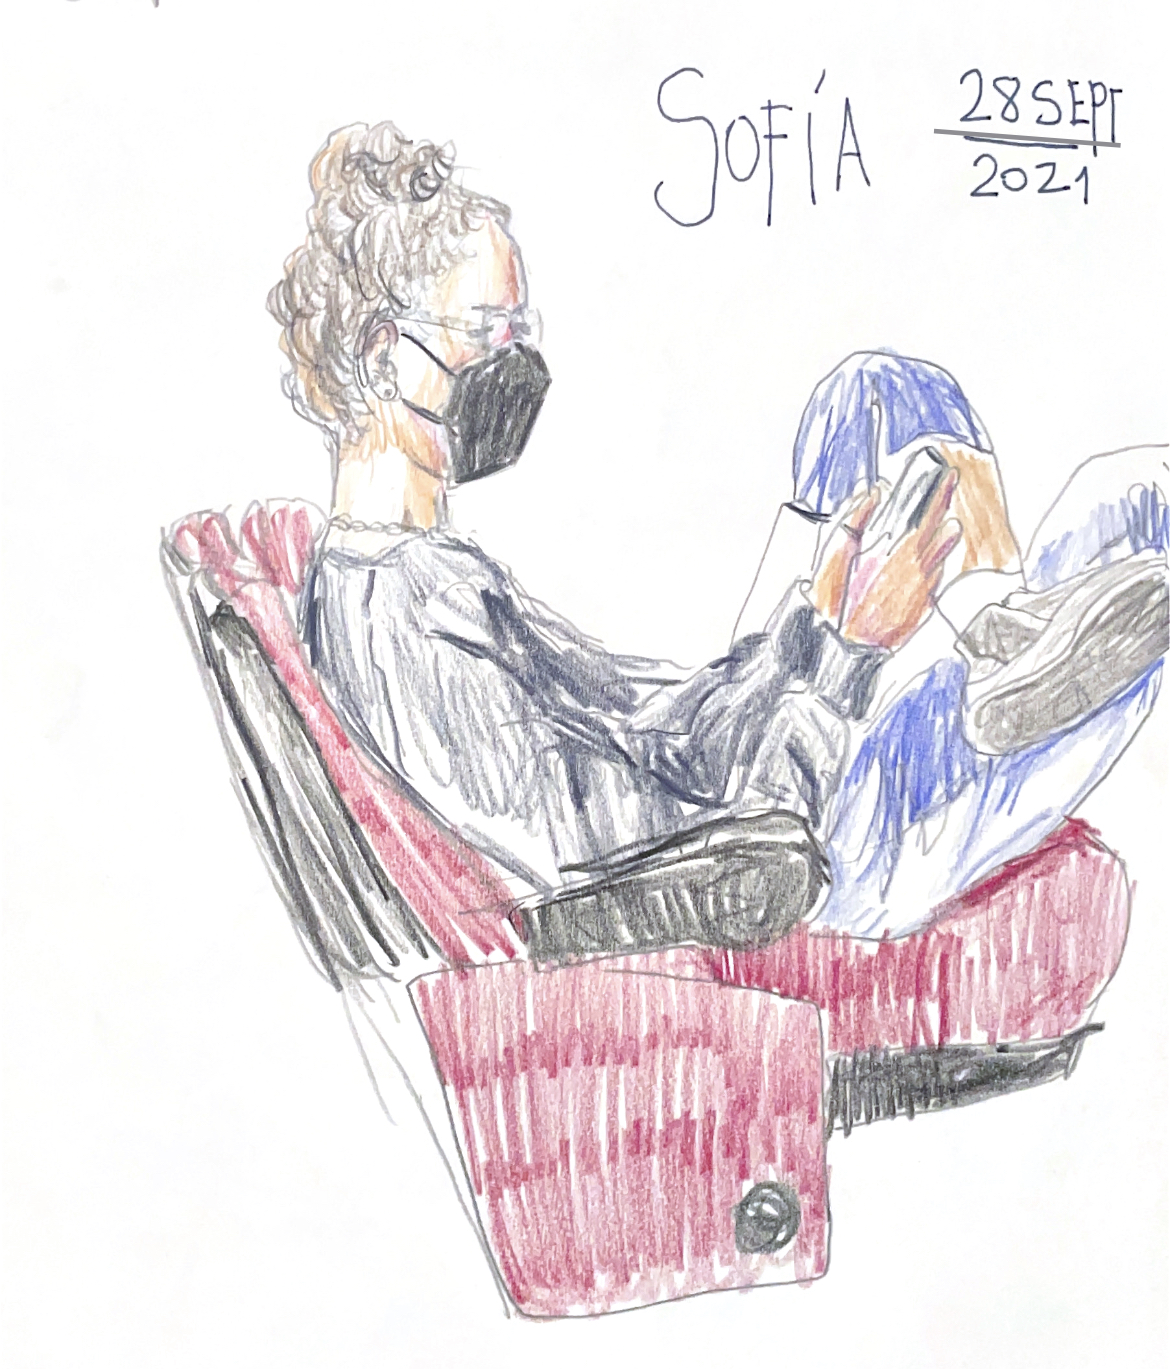 SOFÍA
28 SEPT
2021